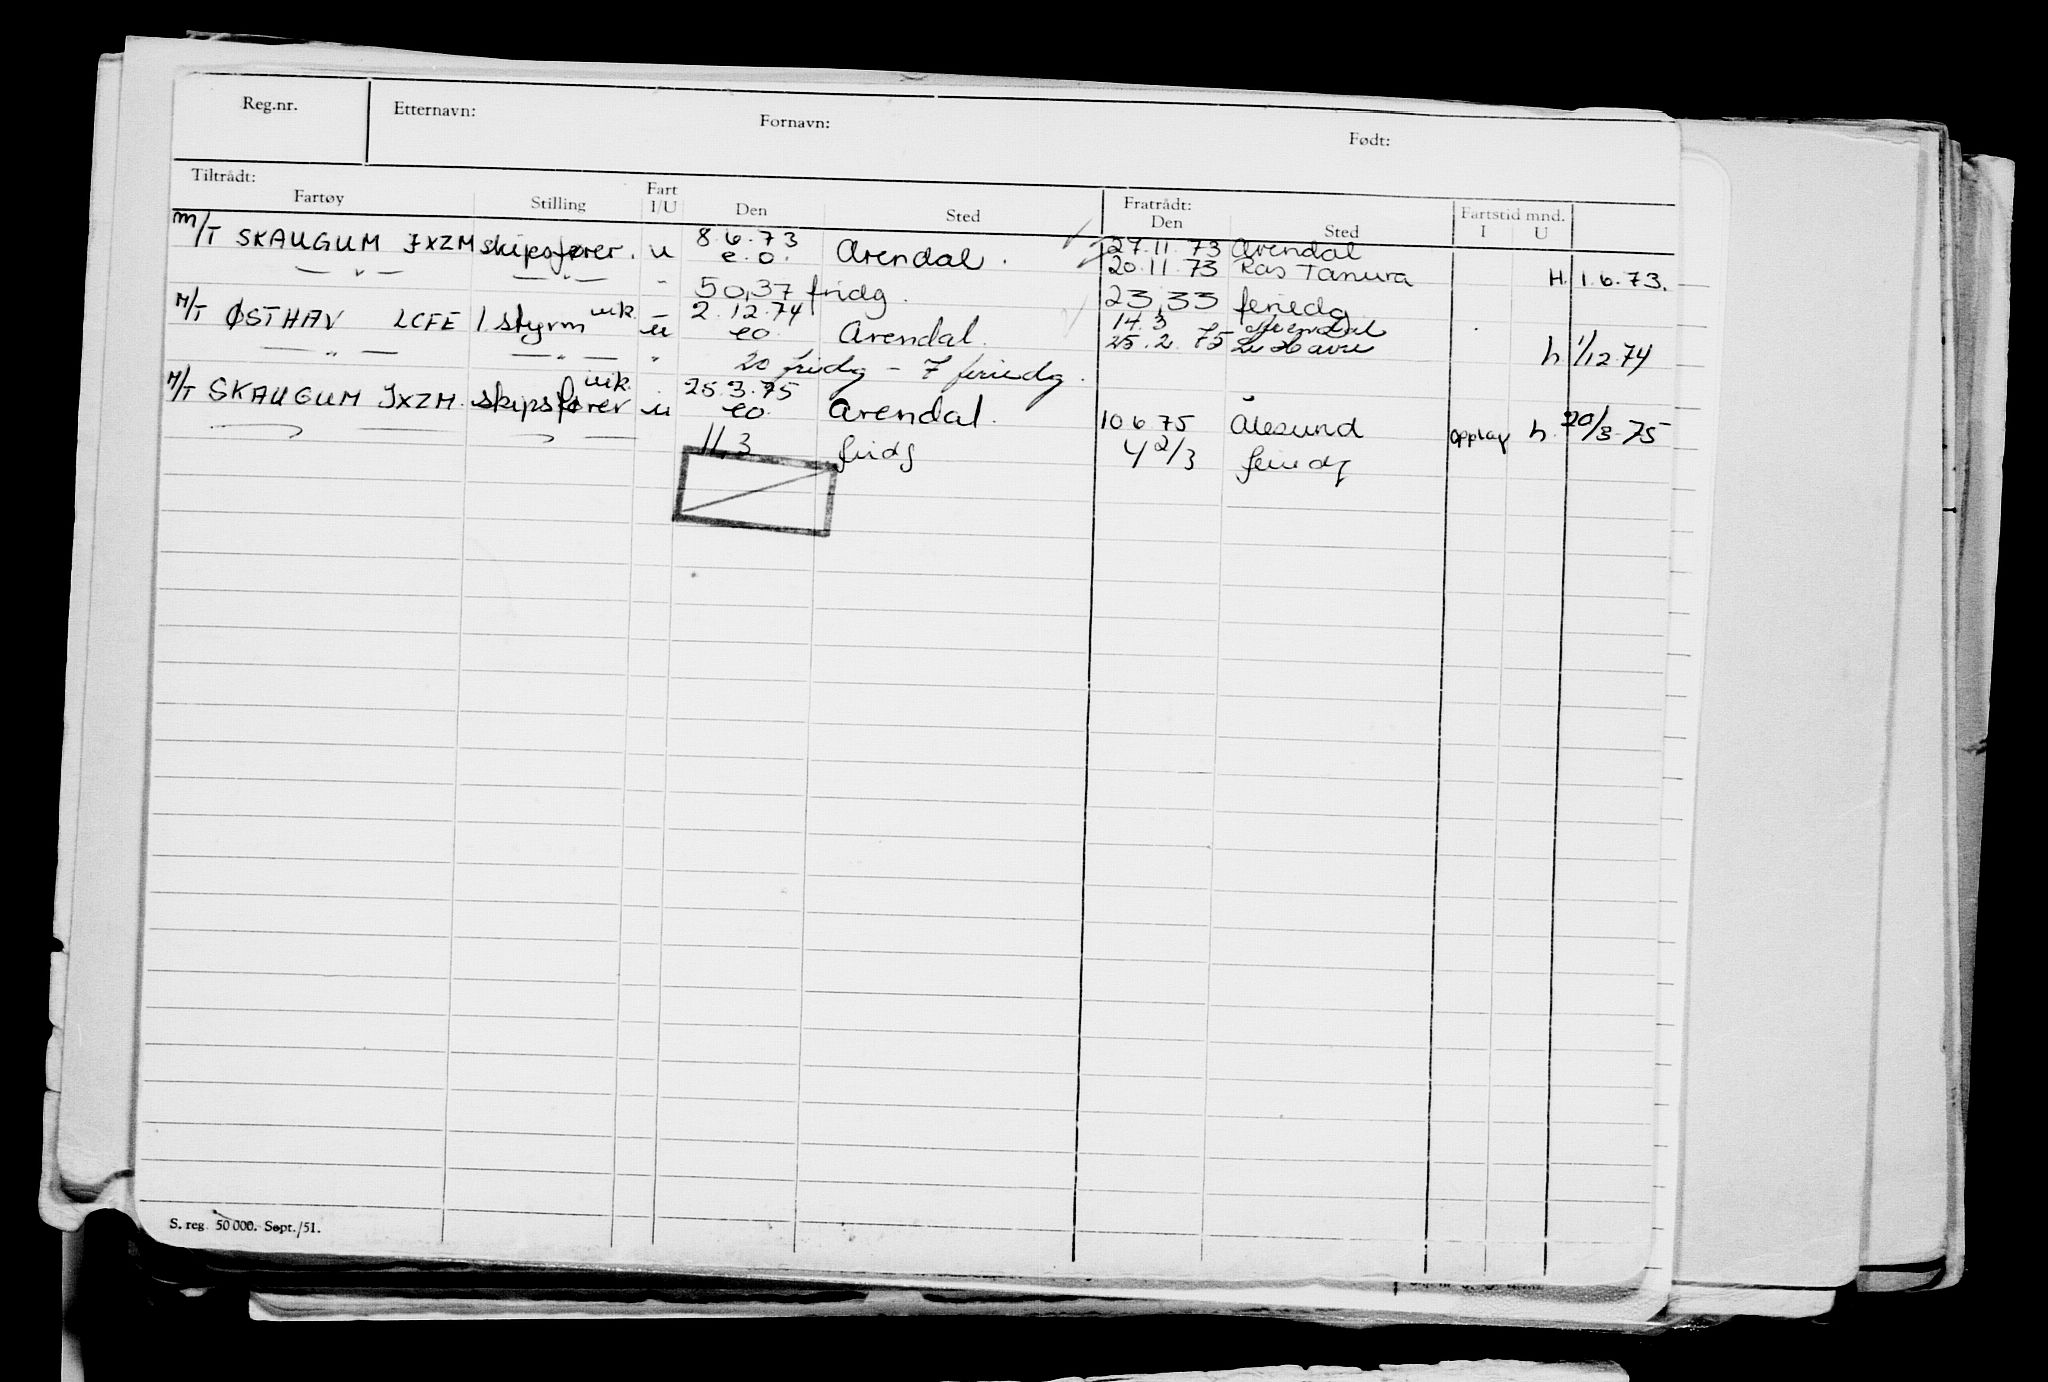 Reg.nr. Etternavn: Fornavn: Født:
Tiltrådt: Fratrådt:
Fartøy Stilling Fart I/U Den Sted Den Sted Fartstid mnd. I U
M/T SKAUGUM JXZM skipsfører. u 8.6.73 e.o. Arendal. 27.11.73 Arendal
— " — — " — " 20.11.73 Ras Tanura H. 1.6.73.
50,37 fridg. 23,33 feriedg.
M/T ØSTHAV LCFE 1 styrm vik. u 2.12.74 eo Arendal. 14.3 Arendal
— " — — " — " 25.2.75 Le Havre h 1/12.74
20 fridg – 7 feriedg.
M/T SKAUGUM JXZM. skipsfører vik. u 25.3.75 eo. Arendal. 10 6 75 Ålesund opplag h. 20/3-75
11.3 fridg 4 2/3 feriedg
S. reg. 50 000. Sept./51.